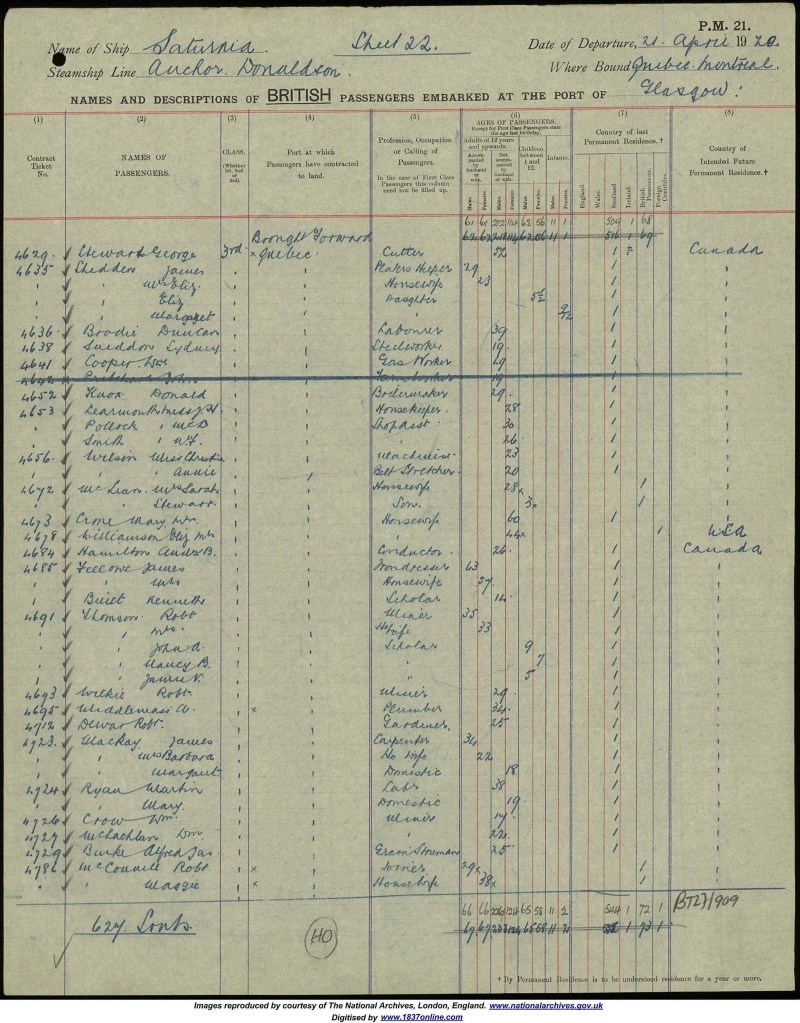 P.M. 21.
Name of Ship Saturnia. Sheet 22. Date of Departure, 21 April 1920.
Steamship Line Anchor Donaldson. Where Bound Quebec. Montreal.
NAMES AND DESCRIPTIONS OF BRITISH PASSENGERS EMBARKED AT THE PORT OF Glasgow:
(1) (2) (3) (4) (5) (6) (7) (8)
Contract Ticket No. NAMES OF PASSENGERS. CLASS. (Whether 1st, 2nd or 3rd). Port at which Passengers have contracted to land. Profession, Occupation or Calling of Passengers. In the case of First Class Passengers this column need not be filled up. AGES OF PASSENGERS. Except for First Class Passengers state the age last birthday. Adults of 12 years and upwards. Accompanied by husband or wife. Not accompanied by husband or wife. Children between 1 and 12. Infants. Males. Females. Males. Females. Males. Females. Males. Females. Country of last Permanent Residence.† England. Wales. Scotland. Ireland. British Possessions. Foreign Countries. Country of Intended Future Permanent Residence.†
Brought Forward
4629 Stewart George 3rd Quebec. Cutter 52 1 Canada
4635 Shedden James Platers Helper 29 1
" " Mrs Eliz. Housewife 23 1
" " Eliz Daughter 5½ 1
" " Margaret " 9/12 1
4636 Brodie Duncan Labourer 39 1
4638 Sneddon Sydney Steelworker 19 1
4641 Cooper Wm Gas Worker 49 1
4642 Pritchard John 19 1
4652 Knox Donald Boilermaker 29 1
4653 Learmonth Housekeeper 28 1
" Pollock " McD Shopasst. 30 1
" Smith " 26 1
4656 Wilson Miss Christina Machinist 23 1
" " Annie Belt Stretcher 20 1
4672 McLean Mrs Sarah Housewife 28x 1
" " Stewart Son 3x 1
4673 Crone Mary Mrs. Housewife 60 1
4678 Williamson Eliz Mrs " 44x 1 USA
4684 Hamilton Andw B. Conductor 26 1 Canada
4685 Fellowe James 63 1
" " Mrs Housewife 57 1
" Kenneth Scholar 14 1
4691 Thomson Robt Miner 35 1
" " Mrs. Ho wife 33 1
" " John A. Scholar 9 1
" " Nancy B. " 7 1
" " " 5 1
4693 Wilkie Robt. Miner 29 1
4695 Middlemass Plumber 34 1
4712 Dewar Robt. Gardener 25 1
4723 MacKay James Carpenter 34 1
" " Mrs Barbara Ho wife 22 1
" " Margaret Domestic 18 1
4724 Ryan Martin Labr 38 1
" " Mary Domestic 19 1
4726 Crow Wm. Miner 1
4727 McLachlan Wm. " 22 1
4729 Burke Alfred Jas. 25 1
McConnell Robt Joiner 29x 1
" " Maggie Housewife 38x 1
BT27/909
627 Souls.
HO
† By Permanent Residence is to be understood residence for a year or more.
Images reproduced by courtesy of The National Archives, London, England. www.nationalarchives.gov.uk
Digitised by www.1837online.com